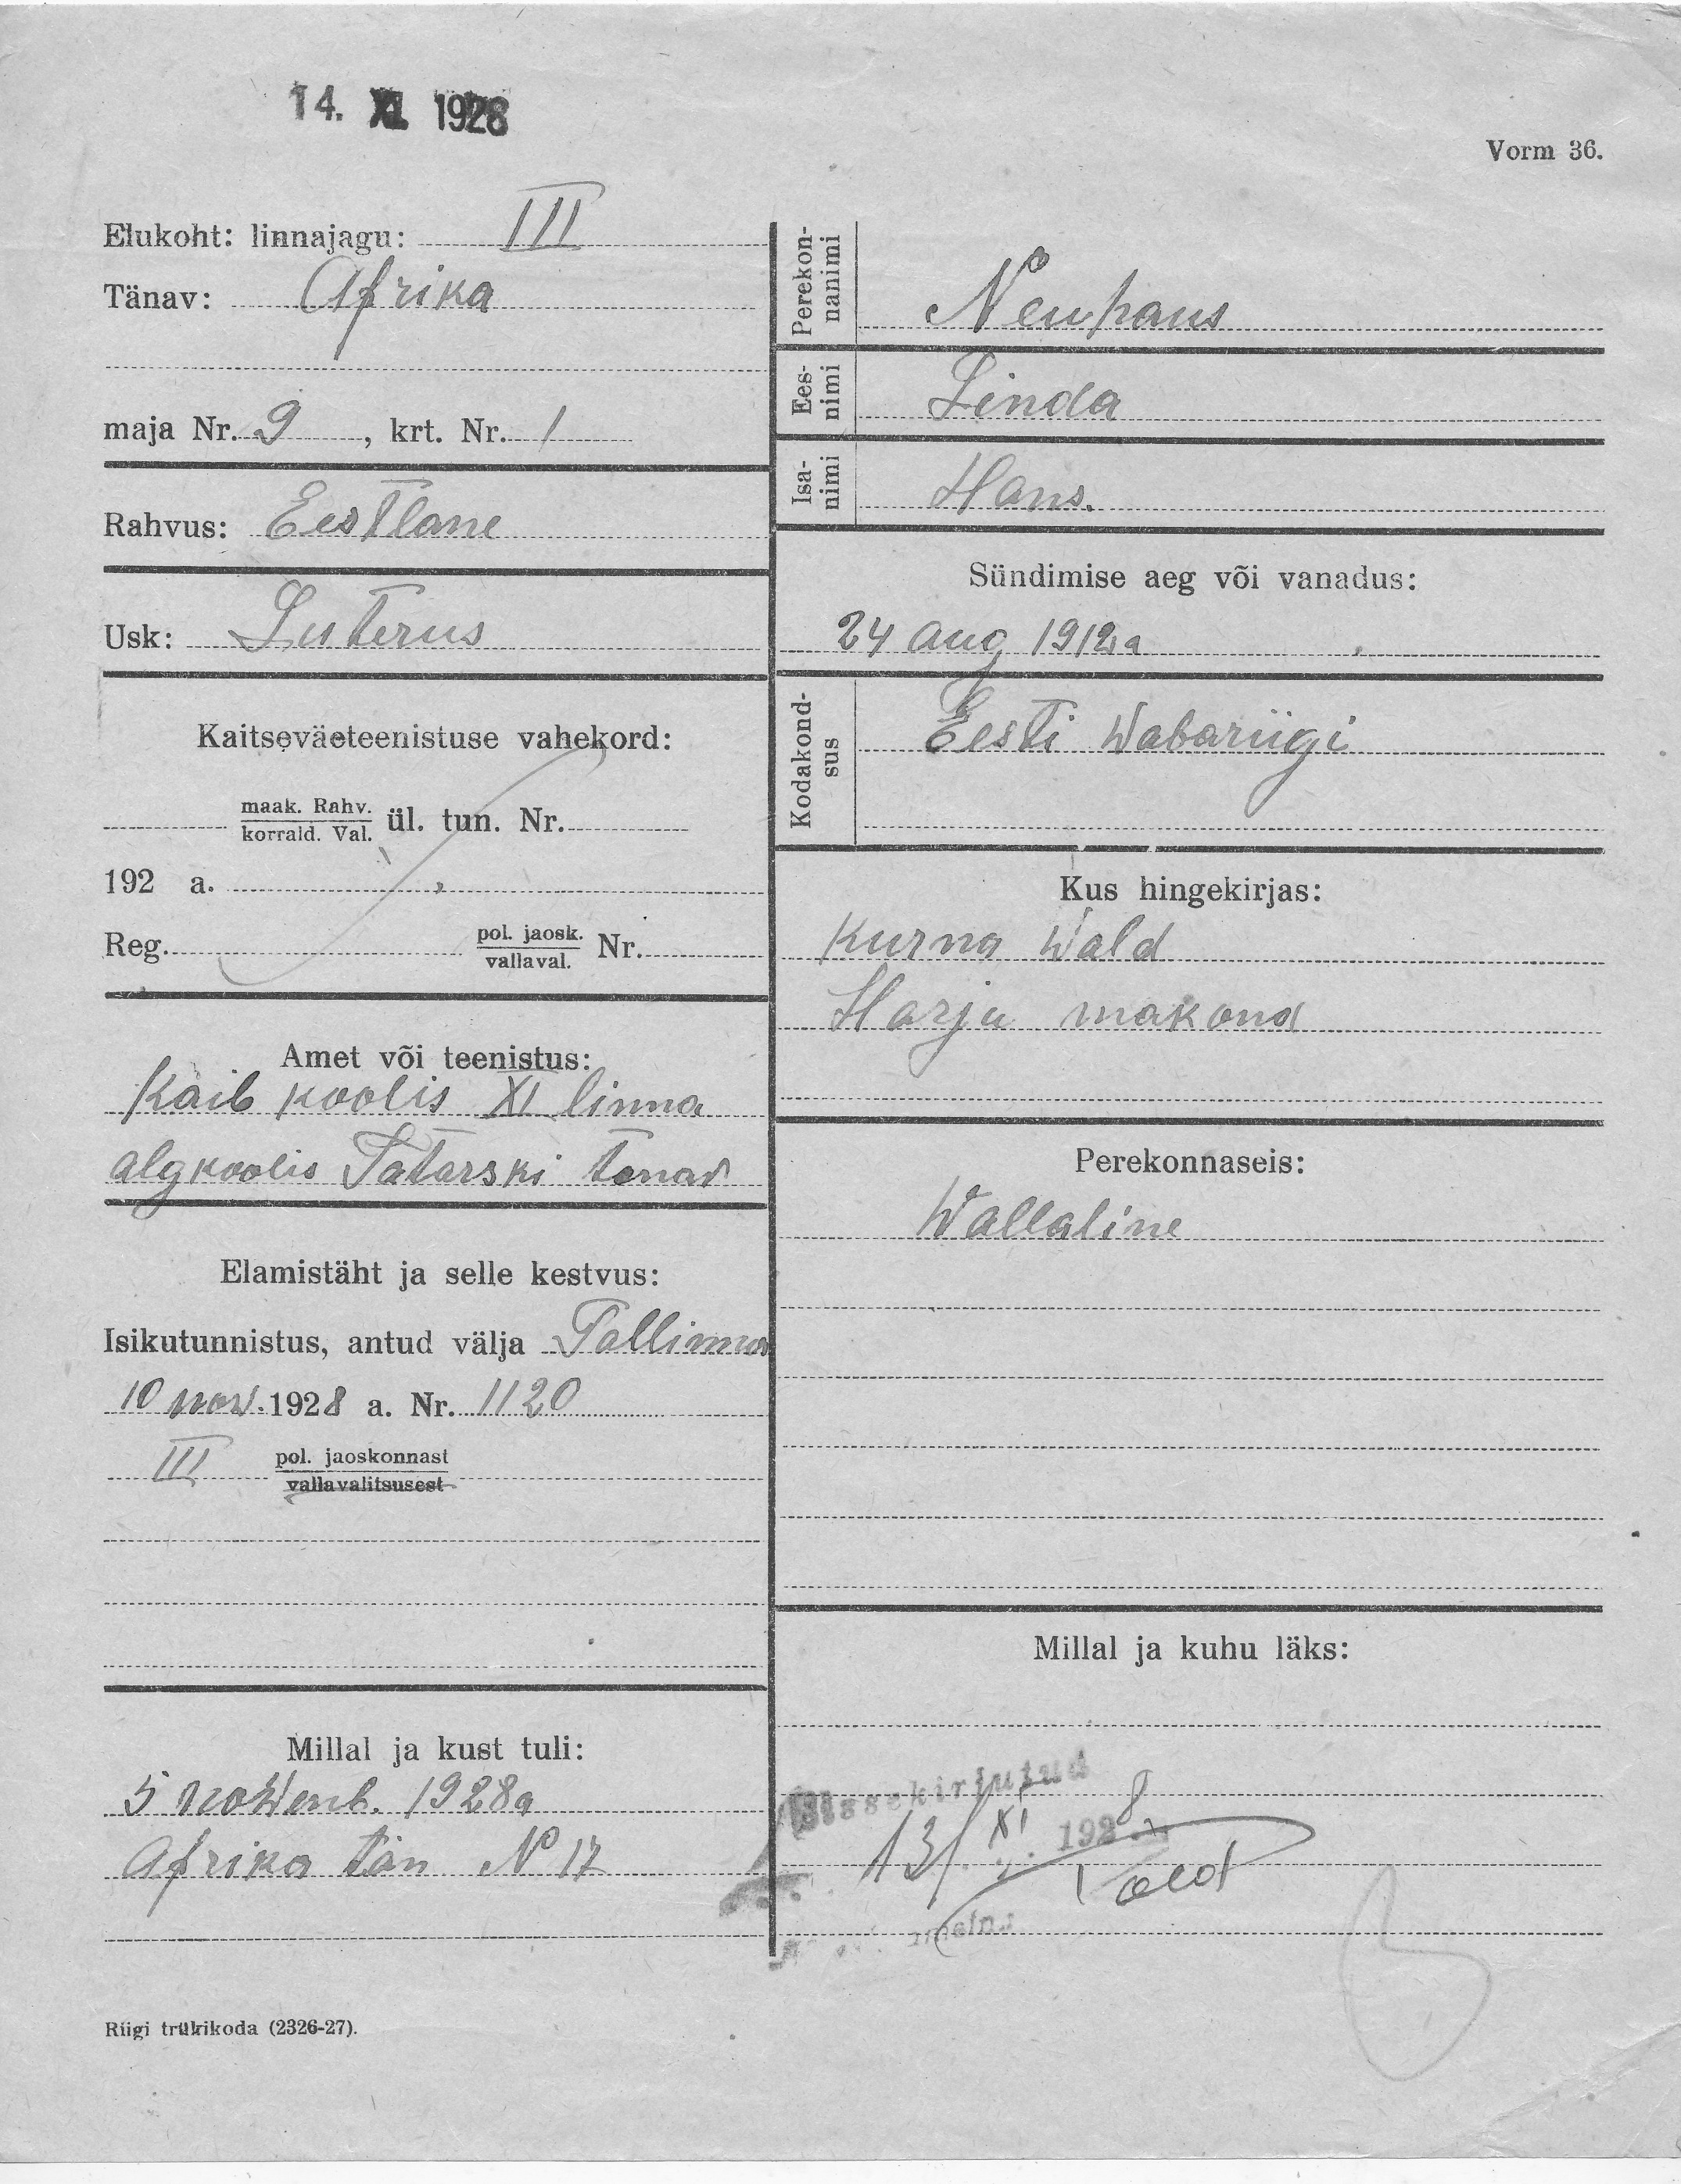 14. XI 1928
Vorm 36.
Elukoht: linnajagu: III
Tänav: Afrika
maja Nr. 9, krt. Nr. 1
Rahvus: Eestlane
Usk: Luterus
Kaitseväeteenistuse vahekord:
maak. Rahv.
korrald. Val. ül. tun. Nr.
192 a.
Reg. pol. jaosk.
vallaval. Nr.
Amet või teenistus:
Kaib koolis XI linna
algkoolis Tatarski tänav
Elamistäht ja selle kestvus:
Isikutunnistus, antud välja Tallinna
10 now. 1928 a. Nr. 1120
III pol. jaoskonnast
vallavalitsusest
Millal ja kust tuli:
5 nowemb. 1928a
Afrika tän N 17
Perekon-
nanimi Neuhaus
Ees-
nimi Linda
Isa-
nimi Hans.
Sündimise aeg või vanadus:
24 aug 1912a
Kodakond-
sus Eesti Wabariigi
Kus hingekirjas:
Kurna Wald
Harju makond
Perekonnaseis:
Wallaline
Millal ja kuhu läks:
Sissekirjutud
13/XI 1928
Riigi trükikoda (2326-27).